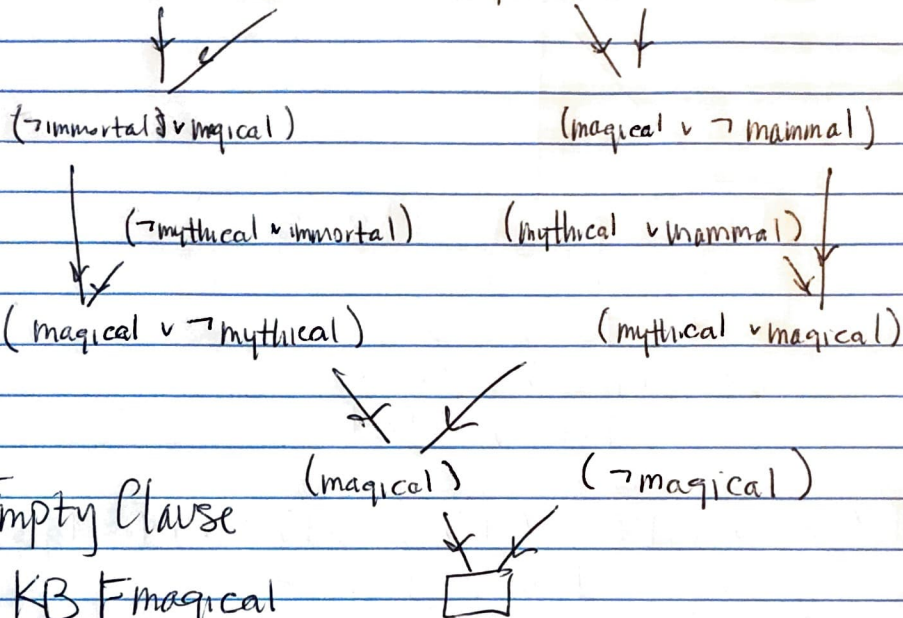 (¬immortal v magical)
(magical v ¬ mammal)
(¬mythical v immortal)
(mythical v mammal)
(magical v ¬mythical)
(mythical v magical)
(magical)
(¬magical)
mpty Clause
KB ⊨ magical